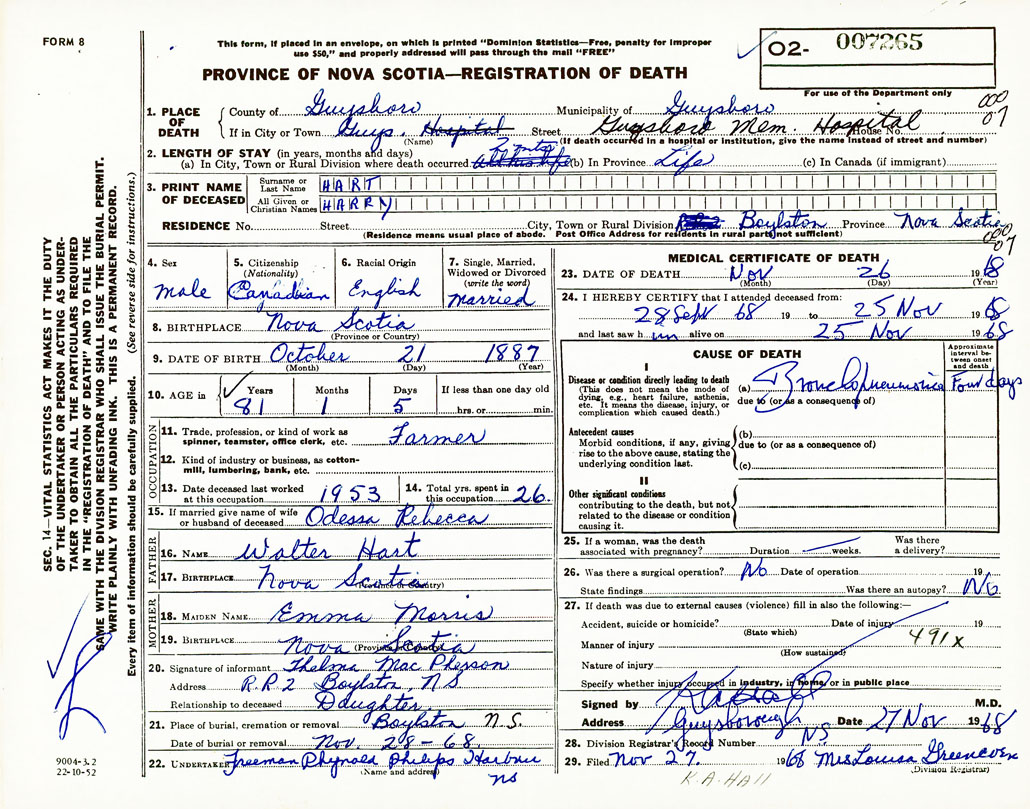 FORM 8
This form, if placed in an envelope, on which is printed "Dominion Statistics—Free, penalty for improper
use $50," and properly addressed will pass through the mail "FREE"
O2- 007265
PROVINCE OF NOVA SCOTIA—REGISTRATION OF DEATH
For use of the Department only
000
07
1. PLACE OF DEATH
County of Guysboro Municipality of Guysboro
If in City or Town Guys. Hospital Street Guysboro Mem. Hospital House No.
(Name) (If death occurred in a hospital or institution, give the name instead of street and number)
2. LENGTH OF STAY (in years, months and days)
(a) In City, Town or Rural Division where death occurred all his life (b) In Province Life (c) In Canada (if immigrant)
3. PRINT NAME OF DECEASED
Surname or Last Name HART
All Given or Christian Names HARRY
RESIDENCE No. Street City, Town or Rural Division Boylston Province Nova Scotia
(Residence means usual place of abode. Post Office Address for residents in rural parts not sufficient)
000
07
SEC. 14—VITAL STATISTICS ACT MAKES IT THE DUTY
OF THE UNDERTAKER OR PERSON ACTING AS UNDER-
TAKER TO OBTAIN ALL THE PARTICULARS REQUIRED
IN THE "REGISTRATION OF DEATH" AND TO FILE THE
SAME WITH THE DIVISION REGISTRAR WHO SHALL ISSUE THE BURIAL PERMIT.
WRITE PLAINLY WITH UNFADING INK. THIS IS A PERMANENT RECORD.
Every item of information should be carefully supplied. (See reverse side for instructions.)
4. Sex male
5. Citizenship (Nationality) Canadian
6. Racial Origin English
7. Single, Married, Widowed or Divorced (write the word) married
8. BIRTHPLACE Nova Scotia
(Province or Country)
9. DATE OF BIRTH October 21 1887
(Month) (Day) (Year)
10. AGE in Years 81 Months 1 Days 5 If less than one day old hrs. or min.
OCCUPATION
11. Trade, profession, or kind of work as spinner, teamster, office clerk, etc. Farmer
12. Kind of industry or business, as cotton-mill, lumbering, bank, etc.
13. Date deceased last worked at this occupation 1953
14. Total yrs. spent in this occupation 26.
15. If married give name of wife or husband of deceased Odessa Rebecca
FATHER
16. NAME Walter Hart
17. BIRTHPLACE Nova Scotia
(Province or Country)
MOTHER
18. MAIDEN NAME Emma Morris
19. BIRTHPLACE Nova Scotia
(Province or Country)
20. Signature of informant Thelma MacPherson
Address R.R.2 Boylston, NS
Relationship to deceased Daughter
21. Place of burial, cremation or removal Boylston N.S.
Date of burial or removal Nov. 28-68
22. UNDERTAKER Freeman Philips Harbour
(Name and address) NS
9004-3.2
22-10-52
MEDICAL CERTIFICATE OF DEATH
23. DATE OF DEATH Nov 26 1968
(Month) (Day) (Year)
24. I HEREBY CERTIFY that I attended deceased from:
28 Sept 68 19 to 25 Nov 1968
and last saw h im alive on 25 Nov 1968
CAUSE OF DEATH
Approximate interval between onset and death
I
Disease or condition directly leading to death
(This does not mean the mode of dying, e.g., heart failure, asthenia, etc. It means the disease, injury, or complication which caused death.)
(a) Bronchopneumonia Four days
due to (or as a consequence of)
Antecedent causes
Morbid conditions, if any, giving rise to the above cause, stating the underlying condition last.
(b)
due to (or as a consequence of)
(c)
II
Other significant conditions
contributing to the death, but not related to the disease or condition causing it.
25. If a woman, was the death associated with pregnancy? Duration weeks. Was there a delivery?
26. Was there a surgical operation? No Date of operation 19
State findings Was there an autopsy? No
27. If death was due to external causes (violence) fill in also the following:—
Accident, suicide or homicide? Date of injury 19
(State which)
Manner of injury 491x
(How sustained)
Nature of injury
Specify whether injury occured in industry, in home, or in public place
Signed by M.D.
Address Guysborough NS Date 27 Nov 1968
28. Division Registrar's Record Number
29. Filed Nov 27. 1968 Mrs Louisa
(Division Registrar)
K.A.HAll